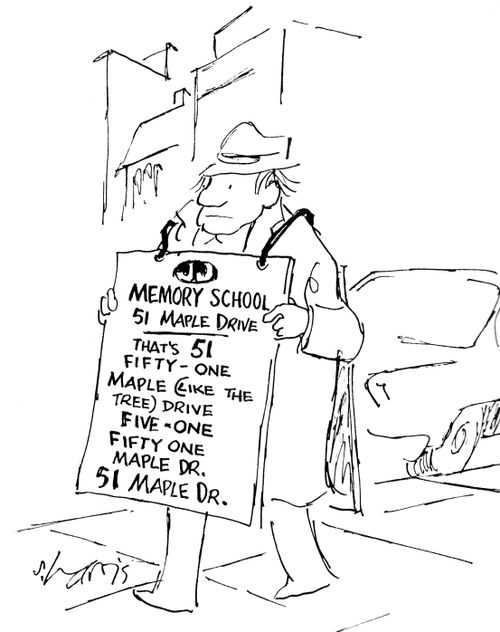 MEMORY SCHOOL
51 MAPLE DRIVE
THAT'S 51
FIFTY-ONE
MAPLE (LIKE THE
TREE) DRIVE
FIVE-ONE
FIFTY ONE
MAPLE DR.
51 MAPLE DR.
s.harris